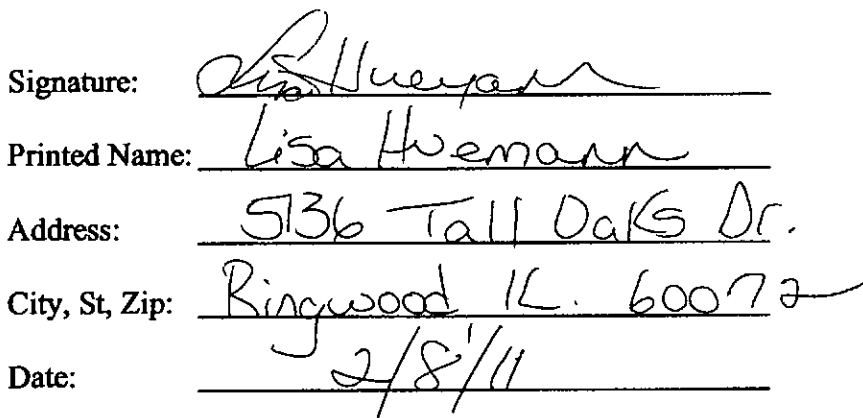 Signature: Lisa Huemann
Printed Name: Lisa Huemann
Address: 5136 Tall Oaks Dr.
City, St, Zip: Ringwood IL. 60072
Date: 2/8/11